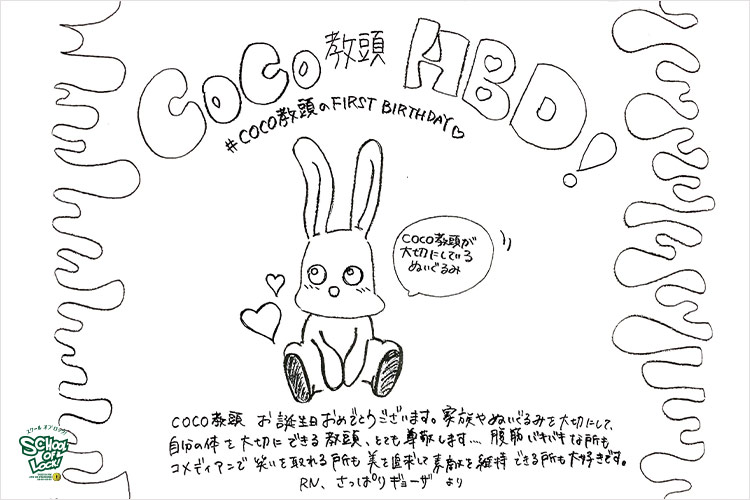 COCO教頭 HBD!
#COCO教頭のFIRST BIRTHDAY♡
COCO教頭が
大切にしている
ぬいぐるみ
COCO教頭 お誕生日おめでとうございます。家族やぬいぐるみを大切にして、
自分の体を大切にできる教頭、とても尊敬します… 腹筋バキバキな所も
コメディアンで笑いを取れる所も美を追求して素敵を維持できる所も大好きです。
RN、さっぱりギョーザ より
スクール オブ ロック!
SCHOOL
OF
LOCK!